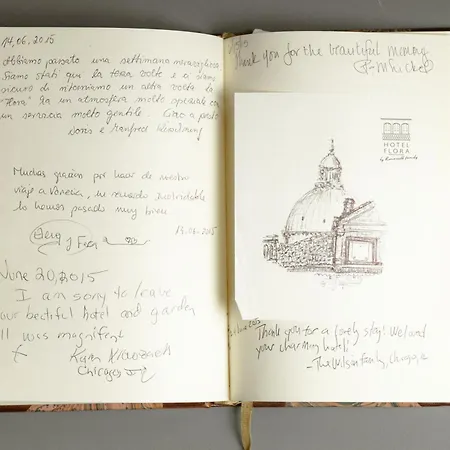 14.06.2015
Abbiamo passato una settimana meravigliosa
Siamo stati qui la terza volta e a siamo
sicuri di ritorniamo un altra volta la
"Flora" ha un atmosfera molto speciale con
un servizio molto gentile. Ciao a presto
Doris e Manfred
Muchas gracias por hacer de nuestro
viaje a Venecia, un recuerdo inolvidable
lo hemos pasado muy bien.
y Fran
19.06.2015
June 20, 2015
I am sorry to leave
your beatiful hotel and garden
All was magnifent
Karin
Chicago
Thank you for the beautiful morning
HOTEL
FLORA
Thank you for a lovely stay! We loved
your charming hotel!
- The Wilson Family, Chicago,